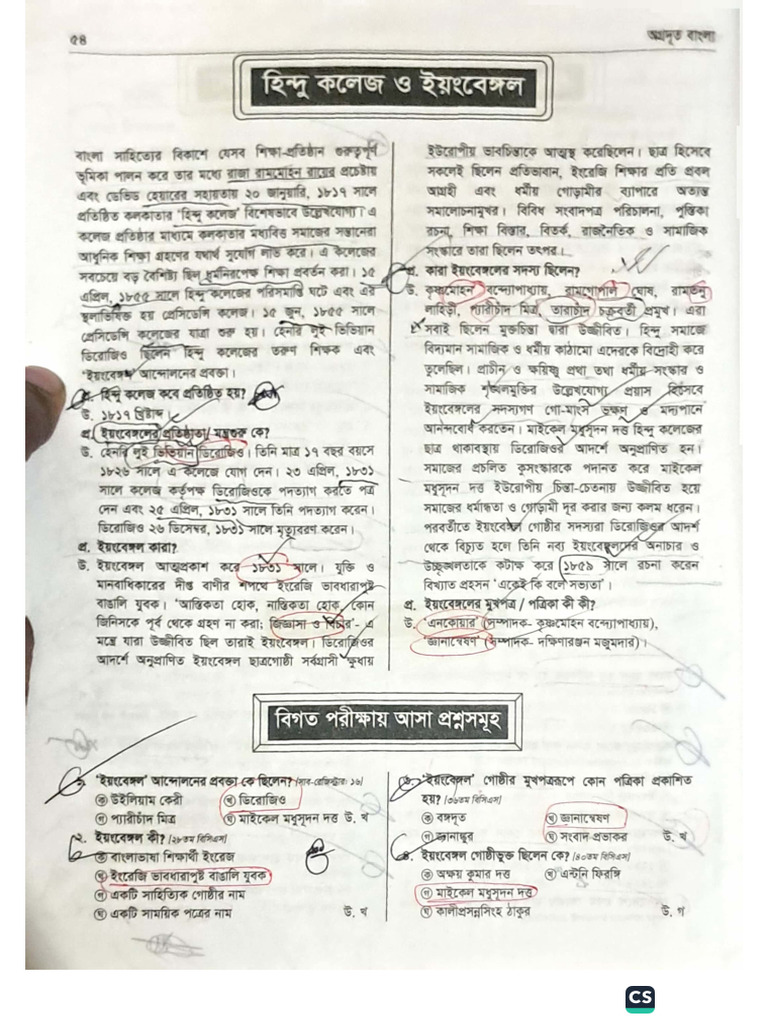 ৫৪
অগ্রদূত বাংলা
হিন্দু কলেজ ও ইয়ংবেঙ্গল
বাংলা সাহিত্যের বিকাশে যেসব শিক্ষা-প্রতিষ্ঠান গুরুত্বপূর্ণ
ভূমিকা পালন করে তার মধ্যে রাজা রামমোহন রায়ের প্রচেষ্টায়
এবং ডেভিড হেয়ারের সহায়তায় ২০ জানুয়ারি, ১৮১৭ সালে
প্রতিষ্ঠিত কলকাতার 'হিন্দু কলেজ' বিশেষভাবে উল্লেখযোগ্য। এ
কলেজ প্রতিষ্ঠার মাধ্যমে কলকাতার মধ্যবিত্ত সমাজের সন্তানেরা
আধুনিক শিক্ষা গ্রহণের যথার্থ সুযোগ লাভ করে। এ কলেজের
সবচেয়ে বড় বৈশিষ্ট্য ছিল ধর্মনিরপেক্ষ শিক্ষা প্রবর্তন করা। ১৫
এপ্রিল, ১৮৫৫ সালে হিন্দু কলেজের পরিসমাপ্তি ঘটে এবং এর
স্থলাভিষিক্ত হয় প্রেসিডেন্সি কলেজ। ১৫ জুন, ১৮৫৫ সালে
প্রেসিডেন্সি কলেজের যাত্রা শুরু হয়। হেনরি লুই ভিভিয়ান
ডিরোজিও ছিলেন হিন্দু কলেজের তরুণ শিক্ষক এবং
'ইয়ংবেঙ্গল' আন্দোলনের প্রবক্তা।
প্র. হিন্দু কলেজ কবে প্রতিষ্ঠিত হয়?
উ. ১৮১৭ খ্রিষ্টাব্দ।
প্র. ইয়ংবেঙ্গলের প্রতিষ্ঠাতা/ মন্ত্রগুরু কে?
উ. হেনরি লুই ভিভিয়ান ডিরোজিও। তিনি মাত্র ১৭ বছর বয়সে
১৮২৬ সালে এ কলেজে যোগ দেন। ২৩ এপ্রিল, ১৮৩১
সালে কলেজ কর্তৃপক্ষ ডিরোজিওকে পদত্যাগ করতে পত্র
দেন এবং ২৫ এপ্রিল, ১৮৩১ সালে তিনি পদত্যাগ করেন।
ডিরোজিও ২৬ ডিসেম্বর, ১৮৩১ সালে মৃত্যুবরণ করেন।
প্র. ইয়ংবেঙ্গল কারা?
উ. ইয়ংবেঙ্গল আত্মপ্রকাশ করে ১৮৩১ সালে। যুক্তি ও
মানবাধিকারের দীপ্ত বাণীর শপথে ইংরেজি ভাবধারাপুষ্ট
বাঙালি যুবক। 'আস্তিকতা হোক, নাস্তিকতা হোক, কোন
জিনিসকে পূর্ব থেকে গ্রহণ না করা; জিজ্ঞাসা ও বিচার'- এ
মন্ত্রে যারা উজ্জীবিত ছিল তারাই ইয়ংবেঙ্গল। ডিরোজিওর
আদর্শে অনুপ্রাণিত ইয়ংবেঙ্গল ছাত্রগোষ্ঠী সর্বগ্রাসী ক্ষুধায়
ইউরোপীয় ভাবচিন্তাকে আত্মস্থ করেছিলেন। ছাত্র হিসেবে
সকলেই ছিলেন প্রতিভাবান, ইংরেজি শিক্ষার প্রতি প্রবল
আগ্রহী এবং ধর্মীয় গোড়ামীর ব্যাপারে অত্যন্ত
সমালোচনামুখর। বিবিধ সংবাদপত্র পরিচালনা, পুস্তিকা
রচনা, শিক্ষা বিস্তার, বিতর্ক, রাজনৈতিক ও সামাজিক
সংস্কারে তারা ছিলেন তৎপর।
প্র. কারা ইয়ংবেঙ্গলের সদস্য ছিলেন?
উ. কৃষ্ণমোহন বন্দ্যোপাধ্যায়, রামগোপাল ঘোষ, রামতনু
লাহিড়ী, প্যারীচাঁদ মিত্র, তারাচাঁদ চক্রবর্তী প্রমুখ। এরা
সবাই ছিলেন মুক্তচিন্তা দ্বারা উজ্জীবিত। হিন্দু সমাজে
বিদ্যমান সামাজিক ও ধর্মীয় কাঠামো এদেরকে বিদ্রোহী করে
তুলেছিল। প্রাচীন ও ক্ষয়িষ্ণু প্রথা তথা ধর্মীয় সংস্কার ও
সামাজিক শৃঙ্খলমুক্তির উল্লেখযোগ্য প্রয়াস হিসেবে
ইয়ংবেঙ্গলের সদস্যগণ গো-মাংস ভক্ষণ ও মদ্যপানে
আনন্দবোধ করতেন। মাইকেল মধুসূদন দত্ত হিন্দু কলেজের
ছাত্র থাকাবস্থায় ডিরোজিওর আদর্শে অনুপ্রাণিত হন।
সমাজের প্রচলিত কুসংস্কারকে পদানত করে মাইকেল
মধুসূদন দত্ত ইউরোপীয় চিন্তা-চেতনায় উজ্জীবিত হয়ে
সমাজের ধর্মান্ধতা ও গোড়ামী দূর করার জন্য কলম ধরেন।
পরবর্তীতে ইয়ংবেঙ্গল গোষ্ঠীর সদস্যরা ডিরোজিওর আদর্শ
থেকে বিচ্যুত হলে তিনি নব্য ইয়ংবেঙ্গলদের অনাচার ও
উচ্ছৃঙ্খলতাকে কটাক্ষ করে ১৮৫৯ সালে রচনা করেন
বিখ্যাত প্রহসন 'একেই কি বলে সভ্যতা'।
প্র. ইয়ংবেঙ্গলের মুখপত্র / পত্রিকা কী কী?
উ. 'এনকোয়ার' (সম্পাদক- কৃষ্ণমোহন বন্দ্যোপাধ্যায়),
'জ্ঞানান্বেষণ' (সম্পাদক- দক্ষিণারঞ্জন মজুমদার)।
বিগত পরীক্ষায় আসা প্রশ্নসমূহ
১. 'ইয়ংবেঙ্গল' আন্দোলনের প্রবক্তা কে ছিলেন? [সাব-রেজিস্ট্রার: ১৬]
ক উইলিয়াম কেরী
খ ডিরোজিও
গ প্যারীচাঁদ মিত্র
ঘ মাইকেল মধুসূদন দত্ত উ. খ
২. ইয়ংবেঙ্গল কী? [২৮তম বিসিএস]
ক বাংলাভাষা শিক্ষার্থী ইংরেজ
খ ইংরেজি ভাবধারাপুষ্ট বাঙালি যুবক
গ একটি সাহিত্যিক গোষ্ঠীর নাম
ঘ একটি সাময়িক পত্রের নাম উ. খ
৩. 'ইয়ংবেঙ্গল' গোষ্ঠীর মুখপত্ররূপে কোন পত্রিকা প্রকাশিত
হয়? [৩৬তম বিসিএস]
ক বঙ্গদূত
খ জ্ঞানান্বেষণ
গ জ্ঞানাঙ্কুর
ঘ সংবাদ প্রভাকর উ. খ
৪. ইয়ংবেঙ্গল গোষ্ঠীভুক্ত ছিলেন কে? [৪০তম বিসিএস]
ক অক্ষয় কুমার দত্ত
খ এন্টনি ফিরিঙ্গি
গ মাইকেল মধুসূদন দত্ত
ঘ কালীপ্রসন্নসিংহ ঠাকুর উ. গ
CS